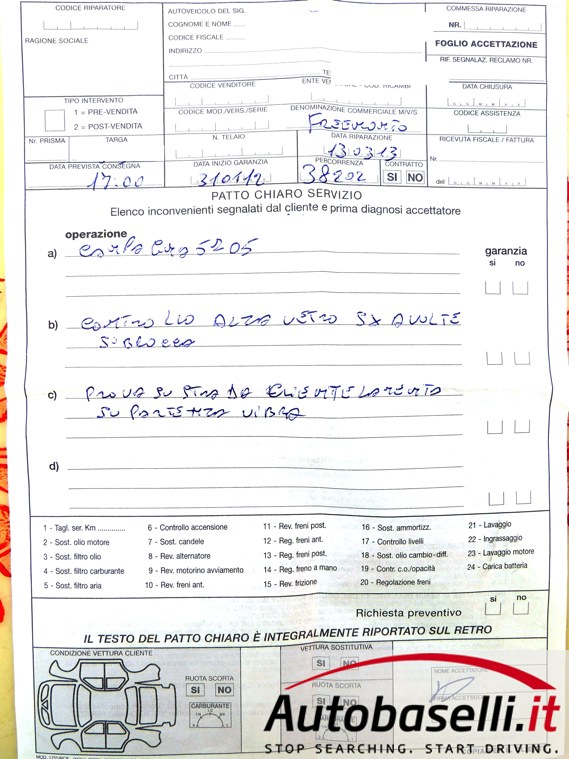 CODICE RIPARATORE
RAGIONE SOCIALE
AUTOVEICOLO DEL SIG.
COGNOME E NOME
CODICE FISCALE
INDIRIZZO
CITTÀ
COMMESSA RIPARAZIONE
NR.
FOGLIO ACCETTAZIONE
RIF. SEGNALAZ. RECLAMO NR.
CODICE VENDITORE
DATA CHIUSURA
TIPO INTERVENTO
1 = PRE-VENDITA
2 = POST-VENDITA
CODICE MOD./VERS./SERIE
DENOMINAZIONE COMMERCIALE M/V/S
FREEMONTO
CODICE ASSISTENZA
Nr. PRISMA
TARGA
N. TELAIO
DATA RIPARAZIONE
130313
RICEVUTA FISCALE / FATTURA
Nr.
DATA PREVISTA CONSEGNA
17:00
DATA INIZIO GARANZIA
310112
PERCORRENZA
38202
CONTRATTO
SI NO
del
PATTO CHIARO SERVIZIO
Elenco inconvenienti segnalati dal cliente e prima diagnosi accettatore
operazione
garanzia
si no
a)
5205
b) CONTROLLO ALZA VETRO SX A VOLTE
SI BLOCCA
c) PROVA SU STRADA CLIENTE LAMENTA
SU PARTENZA VIBRA
d)
1 - Tagl. ser. Km ..............
2 - Sost. olio motore
3 - Sost. filtro olio
4 - Sost. filtro carburante
5 - Sost. filtro aria
6 - Controllo accensione
7 - Sost. candele
8 - Rev. alternatore
9 - Rev. motorino avviamento
10 - Rev. freni ant.
11 - Rev. freni post.
12 - Reg. freni ant.
13 - Reg. freni post.
14 - Reg. freno a mano
15 - Rev. frizione
16 - Sost. ammortizz.
17 - Controllo livelli
18 - Sost. olio cambio-diff.
19 - Contr. c.o/opacità
20 - Regolazione freni
21 - Lavaggio
22 - Ingrassaggio
23 - Lavaggio motore
24 - Carica batteria
si no
Richiesta preventivo
IL TESTO DEL PATTO CHIARO È INTEGRALMENTE RIPORTATO SUL RETRO
CONDIZIONE VETTURA CLIENTE
RUOTA SCORTA
SI NO
CARBURANTE
VETTURA SOSTITUTIVA
SI NO
RUOTA SCORTA
Autobaselli.it
STOP SEARCHING. START DRIVING.